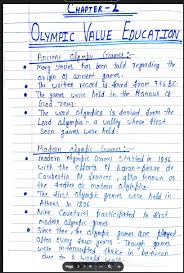 CHAPTER-1
OLYMPIC VALUE EDUCATION
Ancient Olympic Games:-
Many stories has been told regarding the
origin of ancient games.
The written record is found from 776 BC.
The games were held in the Honour of
God Zeus.
The word Olympics is derived from the
Lord Olympia - a valley where first
seen games were held.
Modern Olympic Games:-
Modern Olympic Games started in 1896
with the efforts of Baron-Pierre de
Coubertin of France, also known as
the father of modern Olympics.
The first Olympic games were held in
Athens in 1896
Nine Countries participated in first
modern Olympic games.
Since then the Olympic games are played
after every four years. Though games
were interrupted thrice in between
due to 2 world